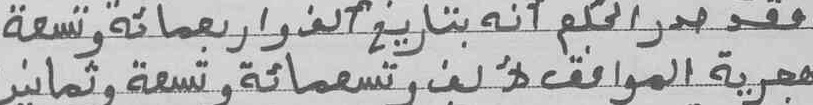 فقد صدر الحكم آنه بتاريخ ألف وأربعمائة وتسعة
هجرية الموافق لألف وتسعمائة وتسعة وثمانين